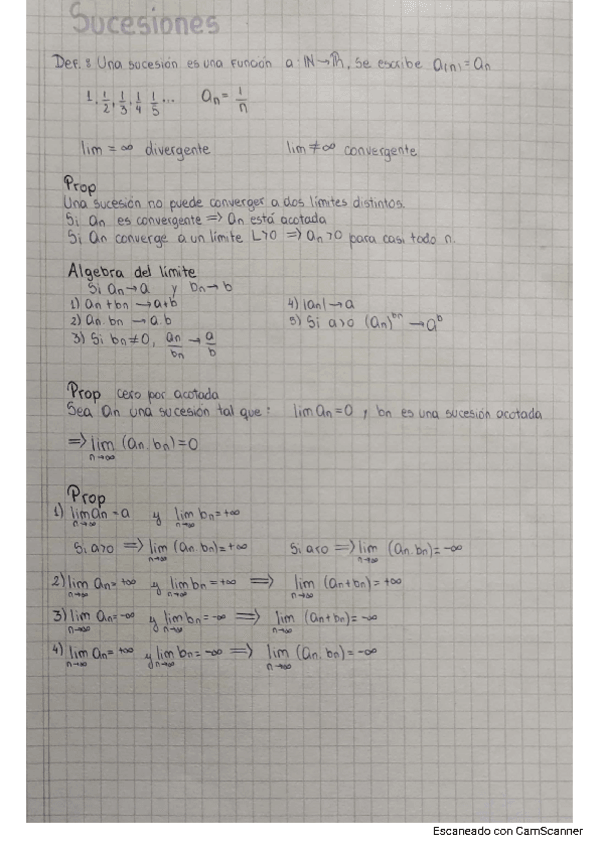 Sucesiones
Def: Una sucesión es una función a: ℕ→ℝ, se escribe a(n) = an
1, 1/2, 1/3, 1/4, 1/5 ... an = 1/n
lim = ∞ divergente lim ≠ ∞ convergente
Prop
Una sucesión no puede converger a dos límites distintos.
Si an es convergente => an está acotada
Si an converge a un límite L>0 => an>0 para casi todo n.
Algebra del límite
Si an→a y bn→b
1) an + bn → a+b 4) |an| → a
2) an. bn → a.b 5) Si a>0 (an)^bn → a^b
3) Si bn≠0, an/bn → a/b
Prop cero por acotada
Sea an una sucesión tal que: lim an=0 y bn es una sucesión acotada
=> lim n→∞ (an. bn)=0
Prop
1) lim n→∞ an = a y lim n→∞ bn = +∞
Si a>0 => lim n→∞ (an. bn)= +∞ Si a<0 => lim n→∞ (an. bn)= -∞
2) lim n→∞ an= +∞ y lim n→∞ bn = +∞ => lim n→∞ (an+bn)= +∞
3) lim n→∞ an= -∞ y lim n→∞ bn= -∞ => lim n→∞ (an+bn)= -∞
4) lim n→∞ an= +∞ y lim n→∞ bn= -∞ => lim n→∞ (an. bn)= -∞
Escaneado con CamScanner